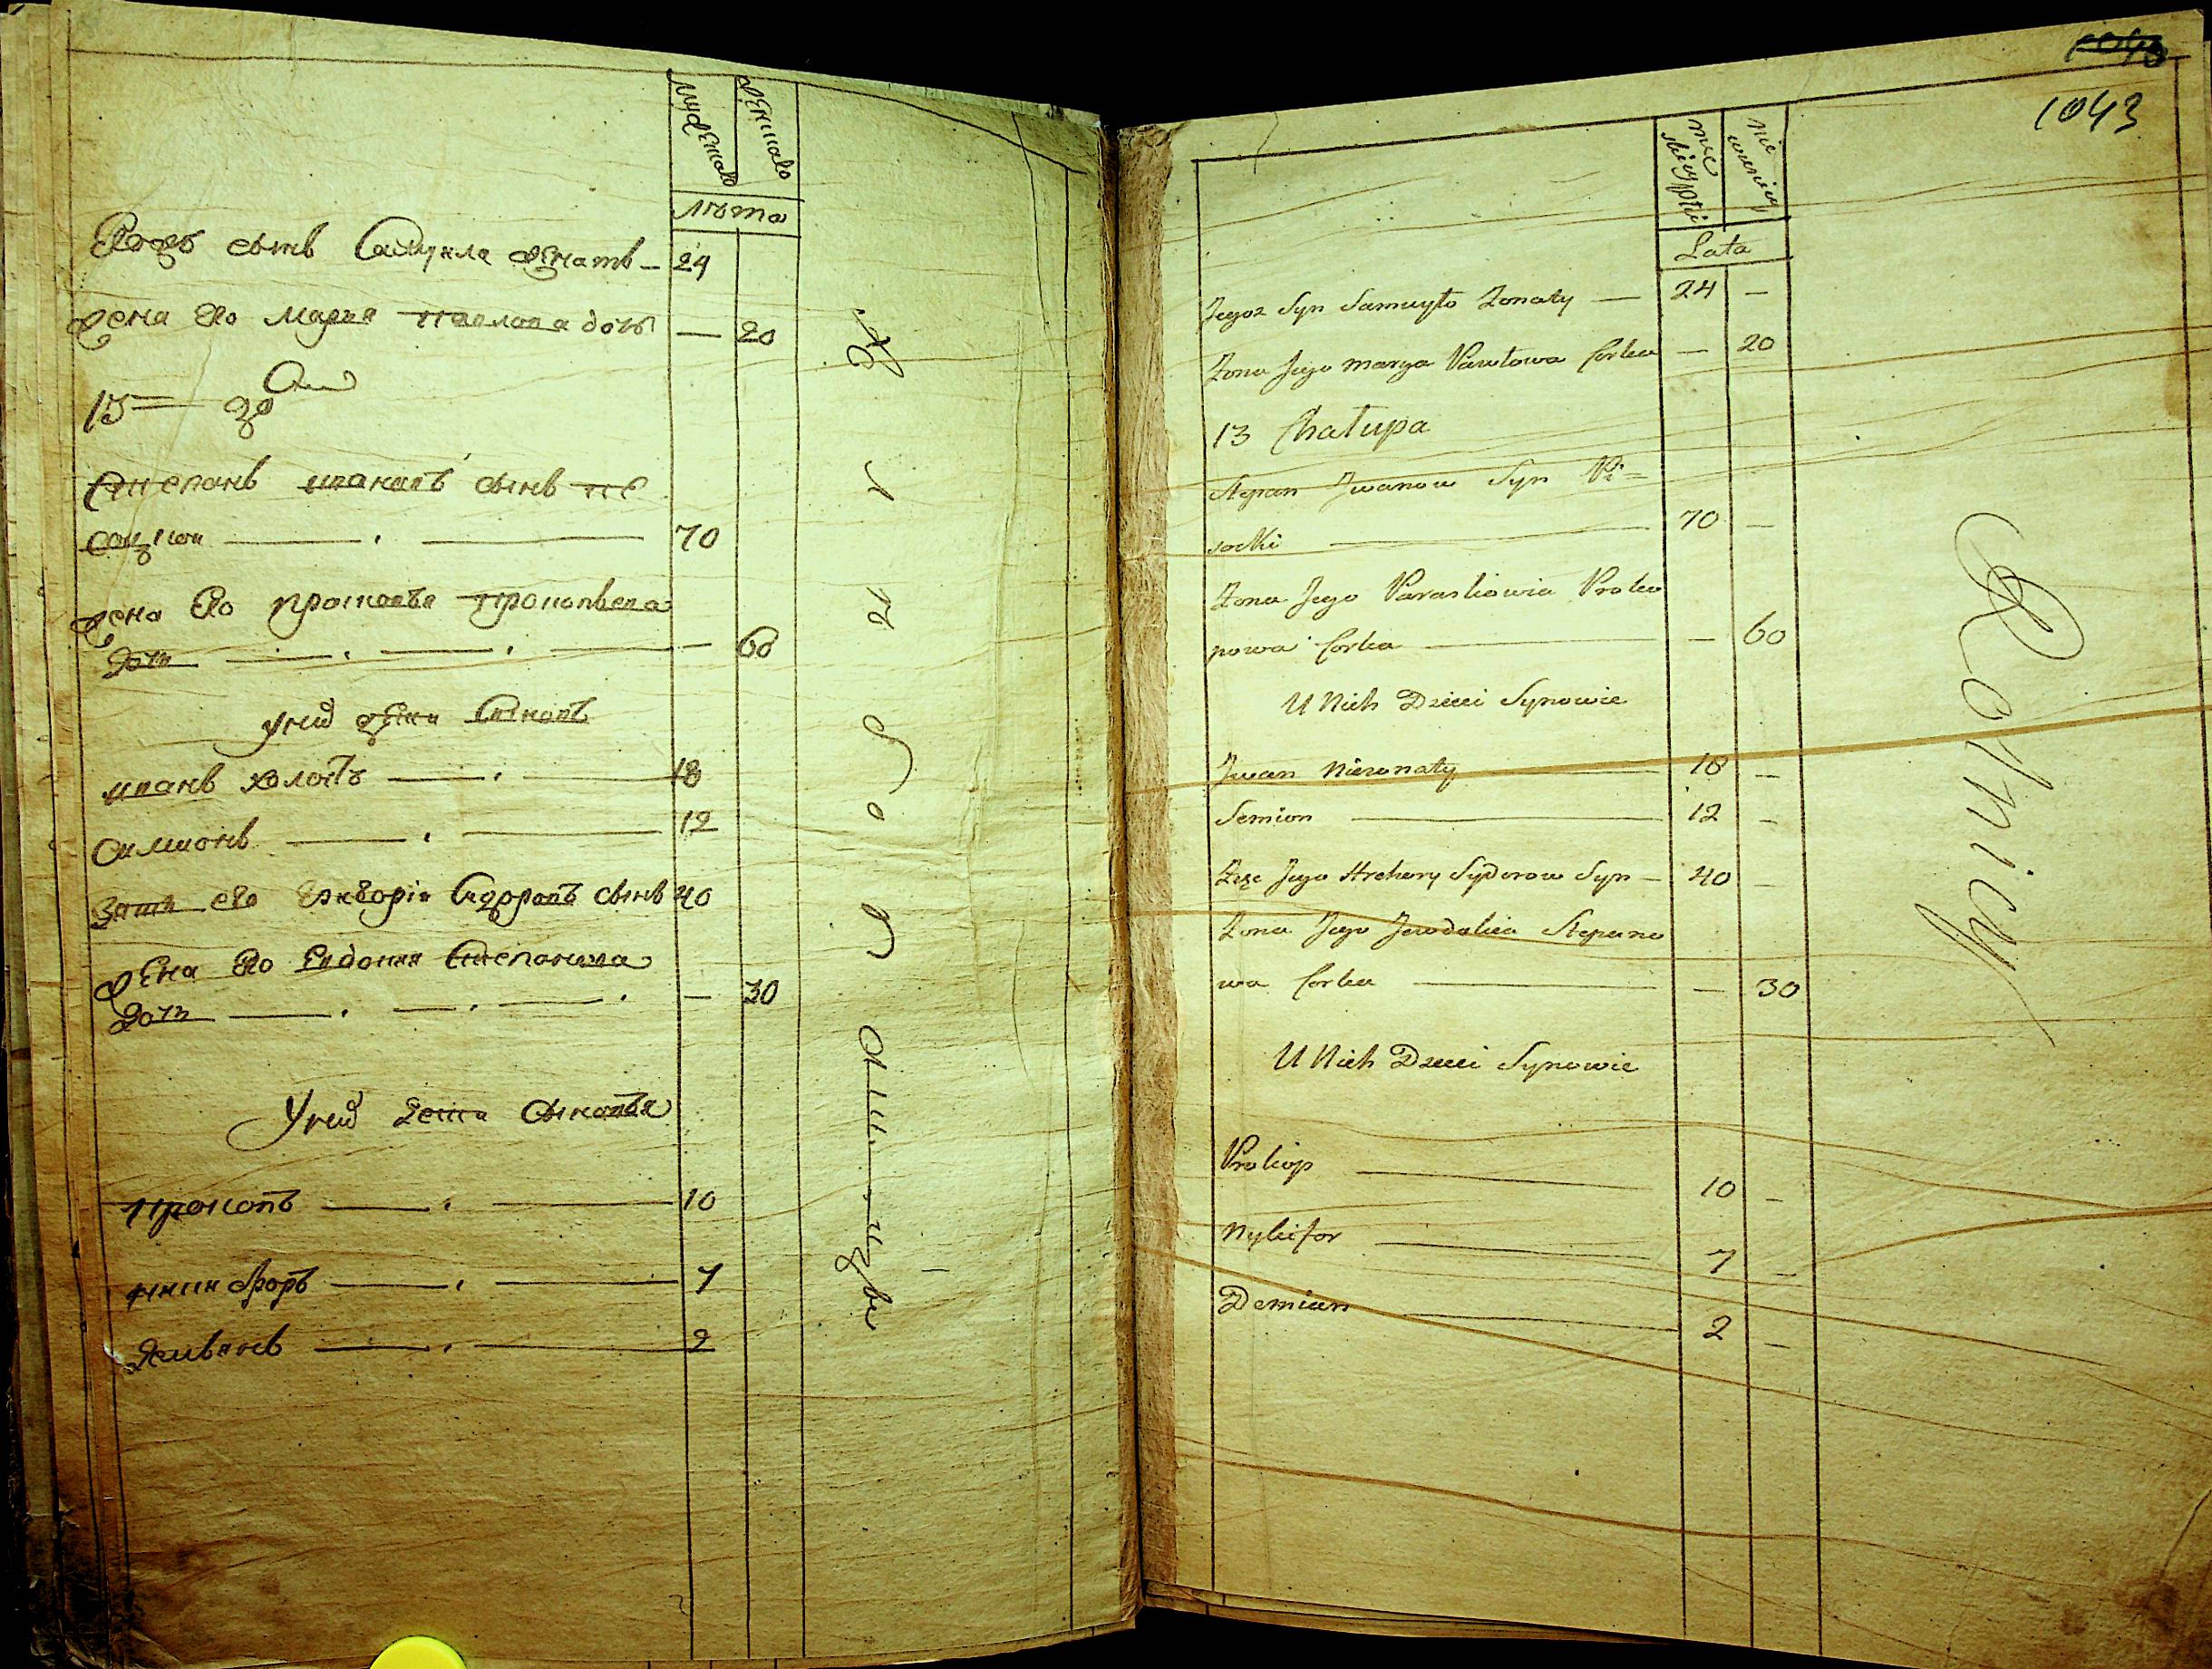 мужеска
женска
Лѣта
Егожъ сынъ Самуила женатъ — 24
жена Его Мария Павлова дочь — 20
13
Степанъ Ивановъ сынъ Пе
соцкии — 70
жена Его Просковья Прокопьева
дочь — 60
у них дѣти Сынов
Иванъ холостъ — 18
Симионъ — 12
Зять его Григорiи Сидоровъ сынъ 40
жена Его Евдокия Степанова
дочь — 30
У них дети Сыновья
Прокопъ — 10
Никифоръ — 7
Демьянъ — 2
1043
Lata
Jegoż Syn Samuyło Żonaty — 24 —
Żona Jego Marya Pawłowa Corka — 20
13 Chałupa
Stepan Jwanow Syn Pi=
socki — 70 —
Żona Jego Paraskiowia Proko
powa Corka — 60
U Nich Dzieci Synowie
Jwan Nieżonaty — 18 —
Semion — 12 —
Zięć Jego Hrehory Sydorow Syn — 40 —
Żona Jego Jewdokia Stepano
wa Corka — 30
U Nich Dzieci Synowie
Prokop — 10 —
Nykifor — 7 —
Demian — 2 —
Rolnicy